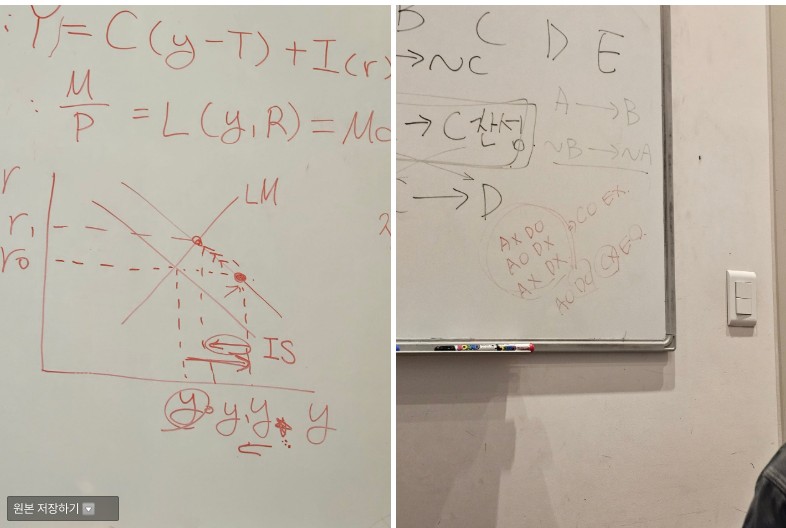 : Y = C(y-T) + I(r)
: M/P = L(y,R) = Md
r
LM
r₁
r₀
IS
y₀ y₁ y* y
원본 저장하기
B C D E
→~C
A → B
→ C 찬성
~B → ~A
C → D
AX DO
AO DX
AX DX
CO EX.
AO DO CX EO.